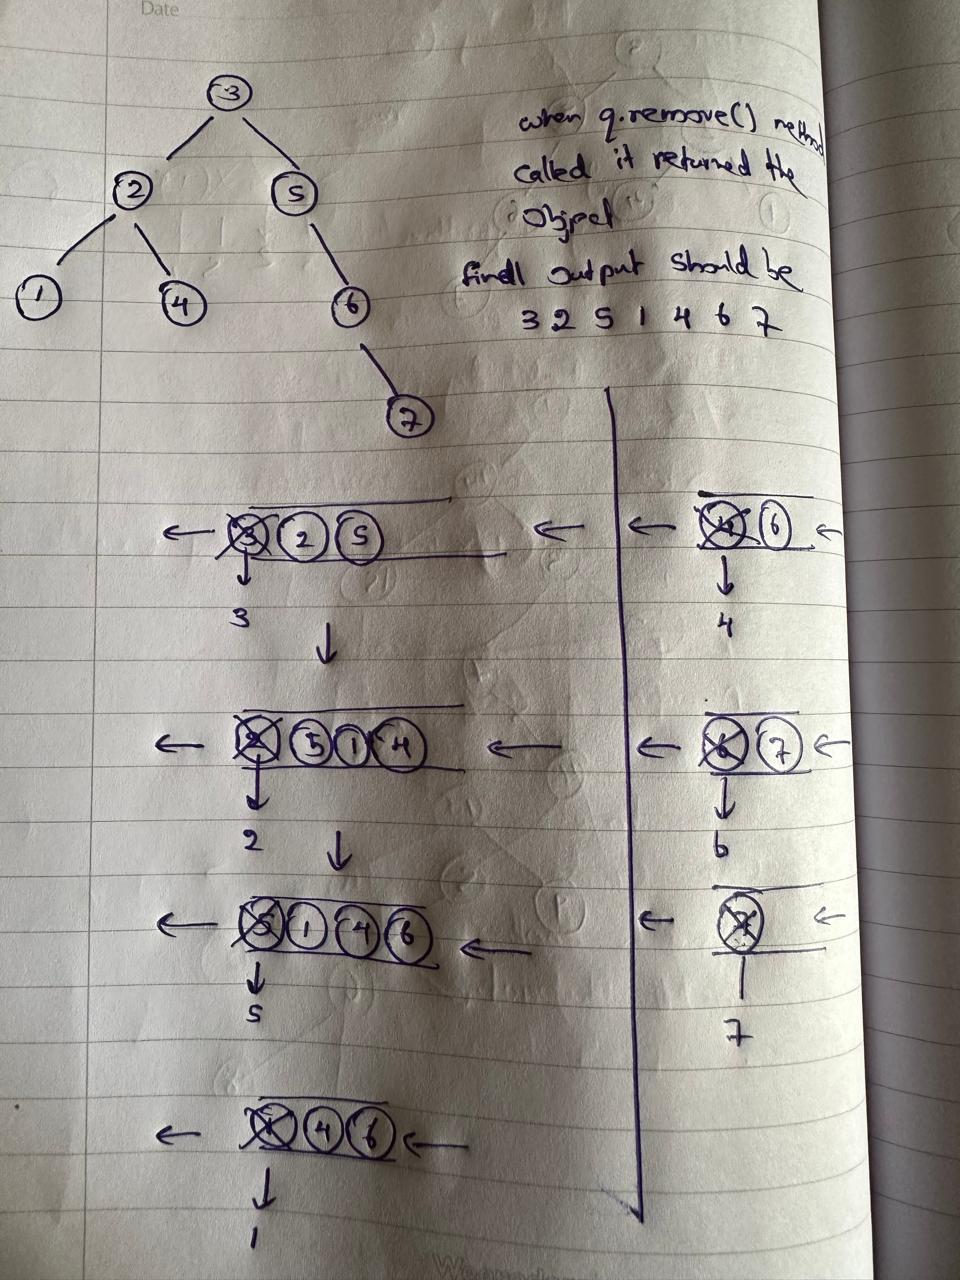 Date
3
2
5
1
4
6
7
when q.remove() method
called it returned the
Objpel
finall output should be
3 2 5 1 4 6 7
3 2 5
3
2 5 1 4
2
5 1 4 6
5
1 4 6
1
4 6
4
6 7
6
7
7